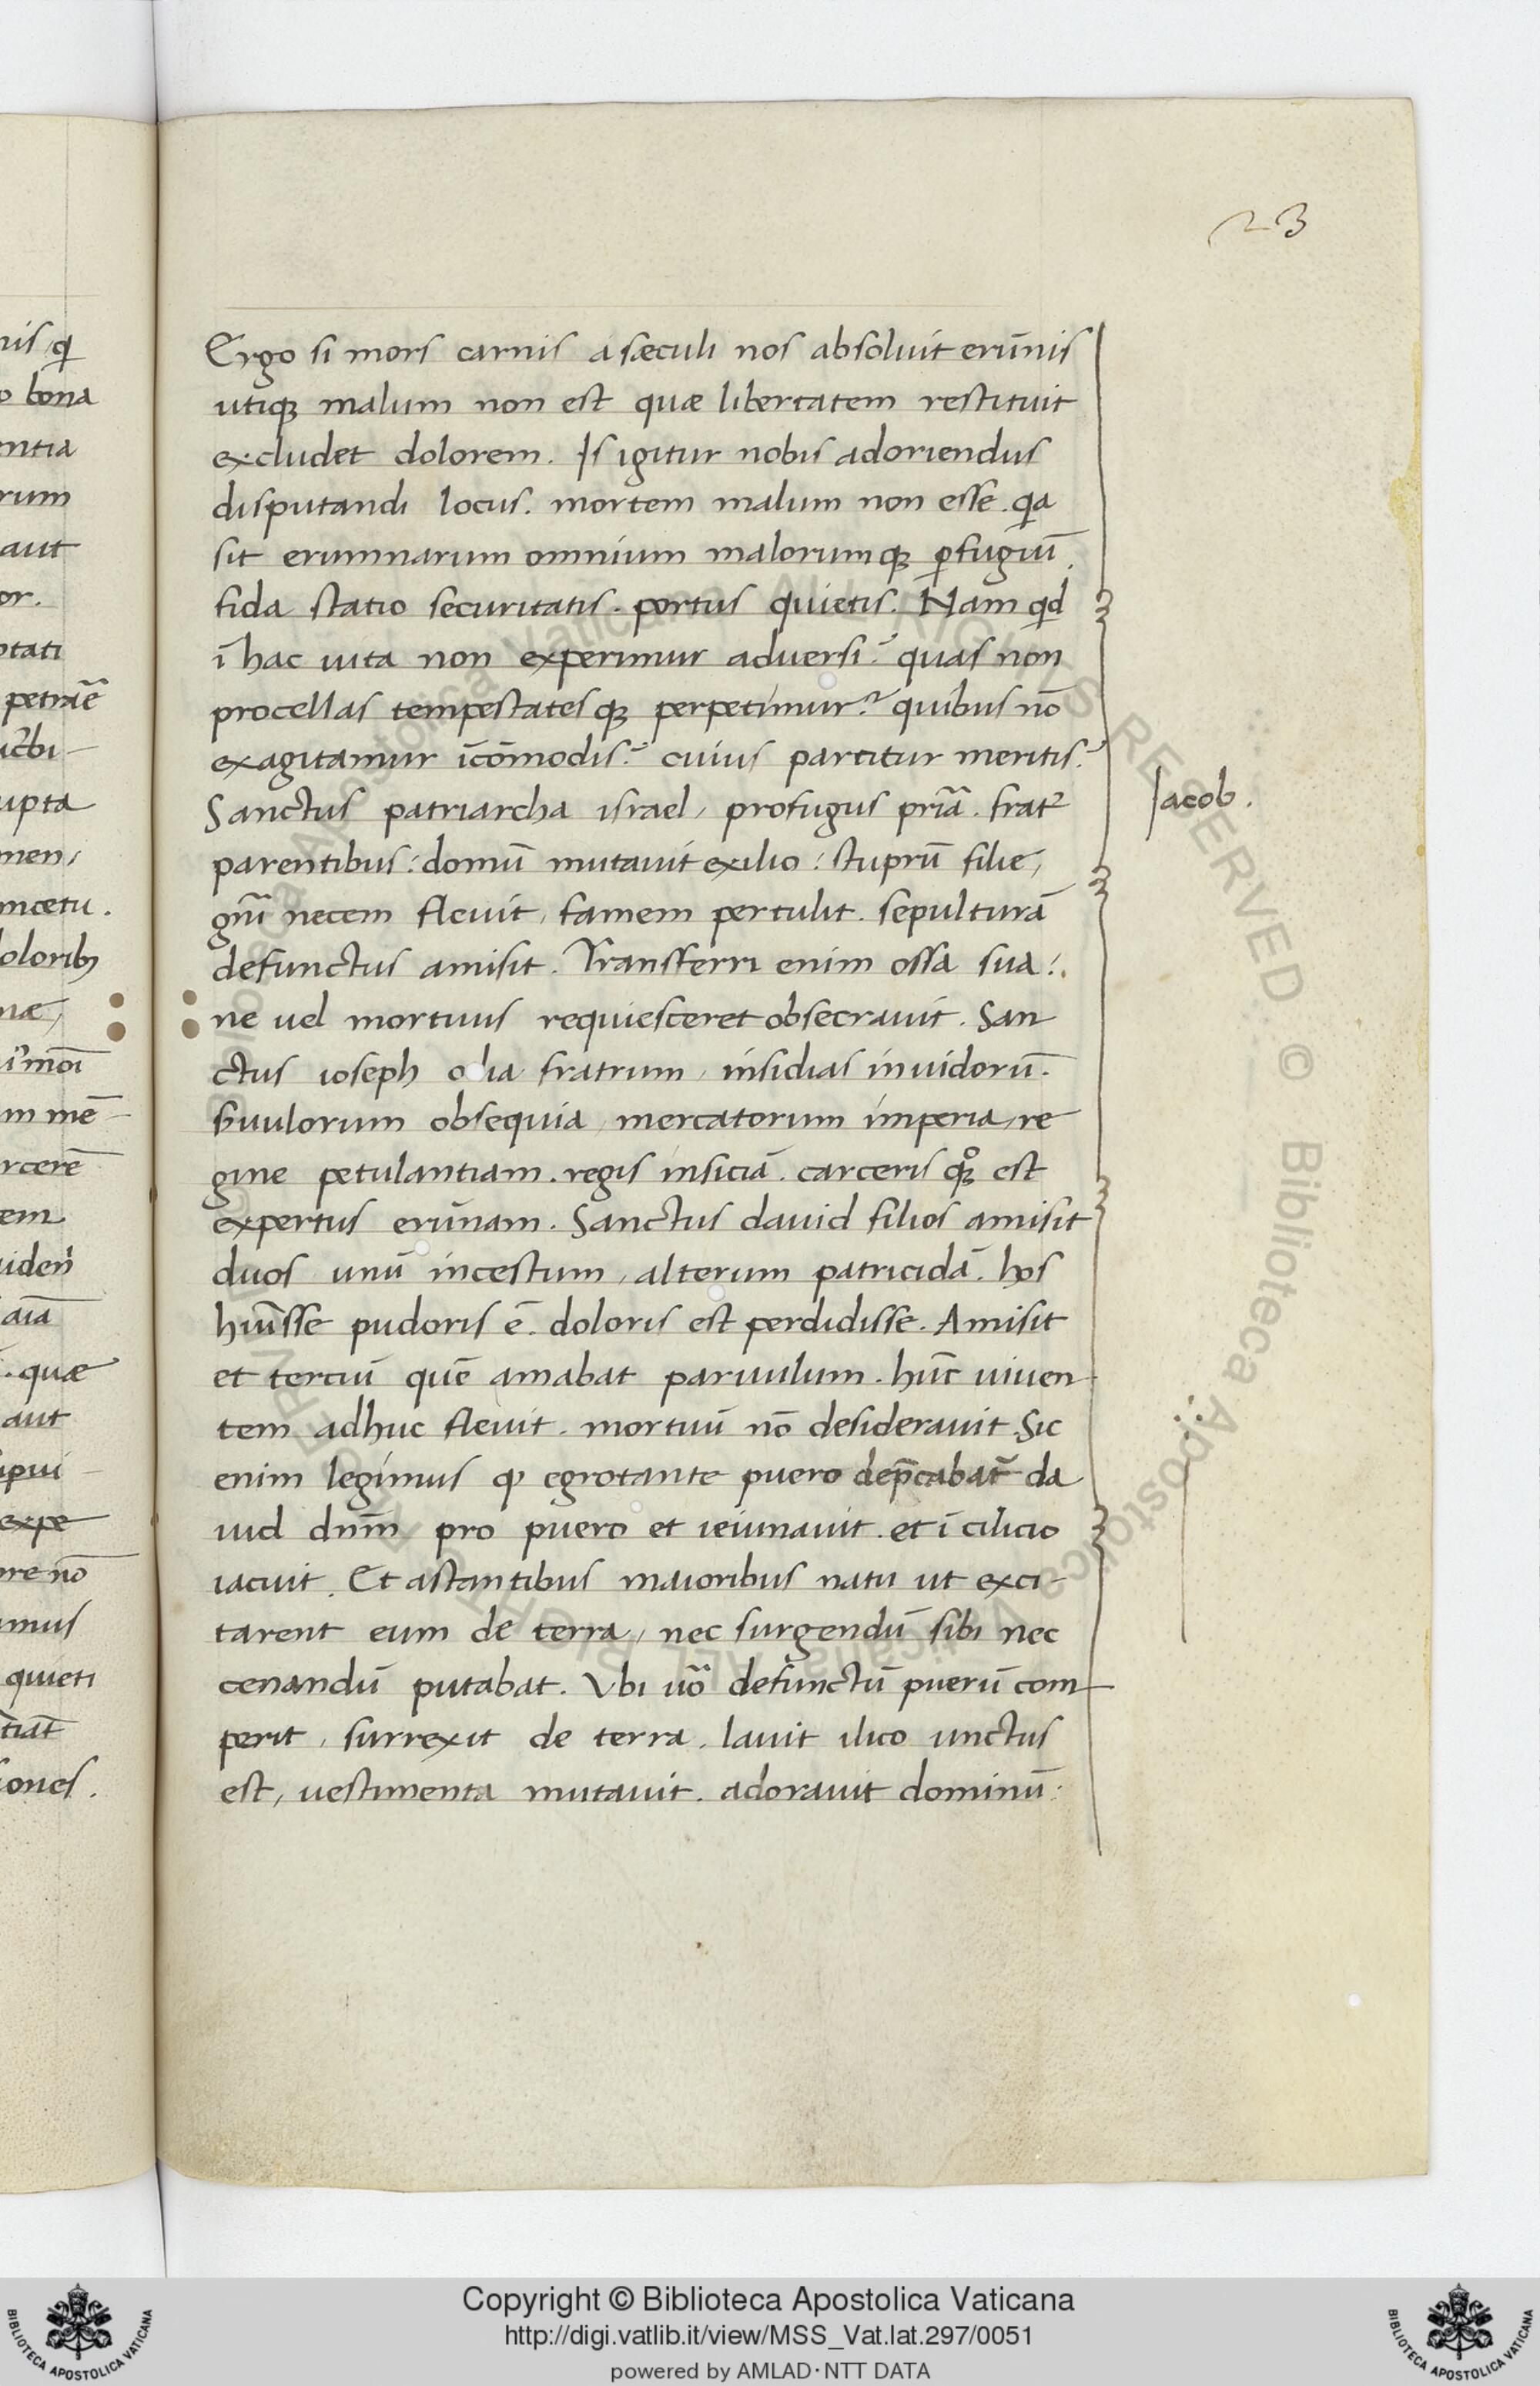 23
Ergo si mors carnis a sæculi nos absoluit erūnis
utiqꝫ malum non est quæ libertatem restituit
excludet dolorem. Is igitur nobis adoriendus
disputandi locus. mortem malum non esse. qa
sit erumnarum omnium malorumqꝫ ꝑfugiū.
fida statio securitatis. portus quietis. Nam qd
ī hac uita non experimur aduersi? quas non
procellas tempestatesqꝫ perpetimur? quibus nō
exagitamur īcōmodis? cuius partitur meritis?
Sanctus patriarcha israel, profugus pr̄ia. fratr̄
parentibus: domū mutauit exilio: stuprū filie,
gn̄i necem fleuit, famem pertulit. sepulturā
defunctus amisit. Transferri enim ossa sua:
ne uel mortuus requiesceret obsecrauit. San
ctus ioseph odia fratrum, insidias inuidorū.
s̄uulorum obsequia, mercatorum imperia, re
gine petulantiam. regis insiciā. carceris qꝫ̊ est
expertus erūnam. Sanctus dauid filios amisit
duos unū incestum, alterum patricidā. hos
hūisse pudoris ē. doloris est perdidisse. Amisit
et terciū quē amabat paruulum. hūc uiuen
tem adhuc fleuit. mortuū nō desiderauit. Sic
enim legimus ꝙ egrotante puero dep̄cabat̄ da
uid dnm̄ pro puero et ieiunauit. et ī cilicio
iacuit. Et astantibus maioribus natu ut exci-
tarent eum de terra, nec surgendū sibi nec
cenandū putabat. Vbi uō defunctū puerū com
perit, surrexit de terra. lauit ilico unctus
est, uestimenta mutauit. adorauit dominū:
Jacob.
bona
rum
aut
petr̄ie
quæ
aut
quieti
Copyright © Biblioteca Apostolica Vaticana
http://digi.vatlib.it/view/MSS_Vat.lat.297/0051
powered by AMLAD·NTT DATA
BIBLIOTECA APOSTOLICA VATICANA
BIBLIOTECA APOSTOLICA VATICANA